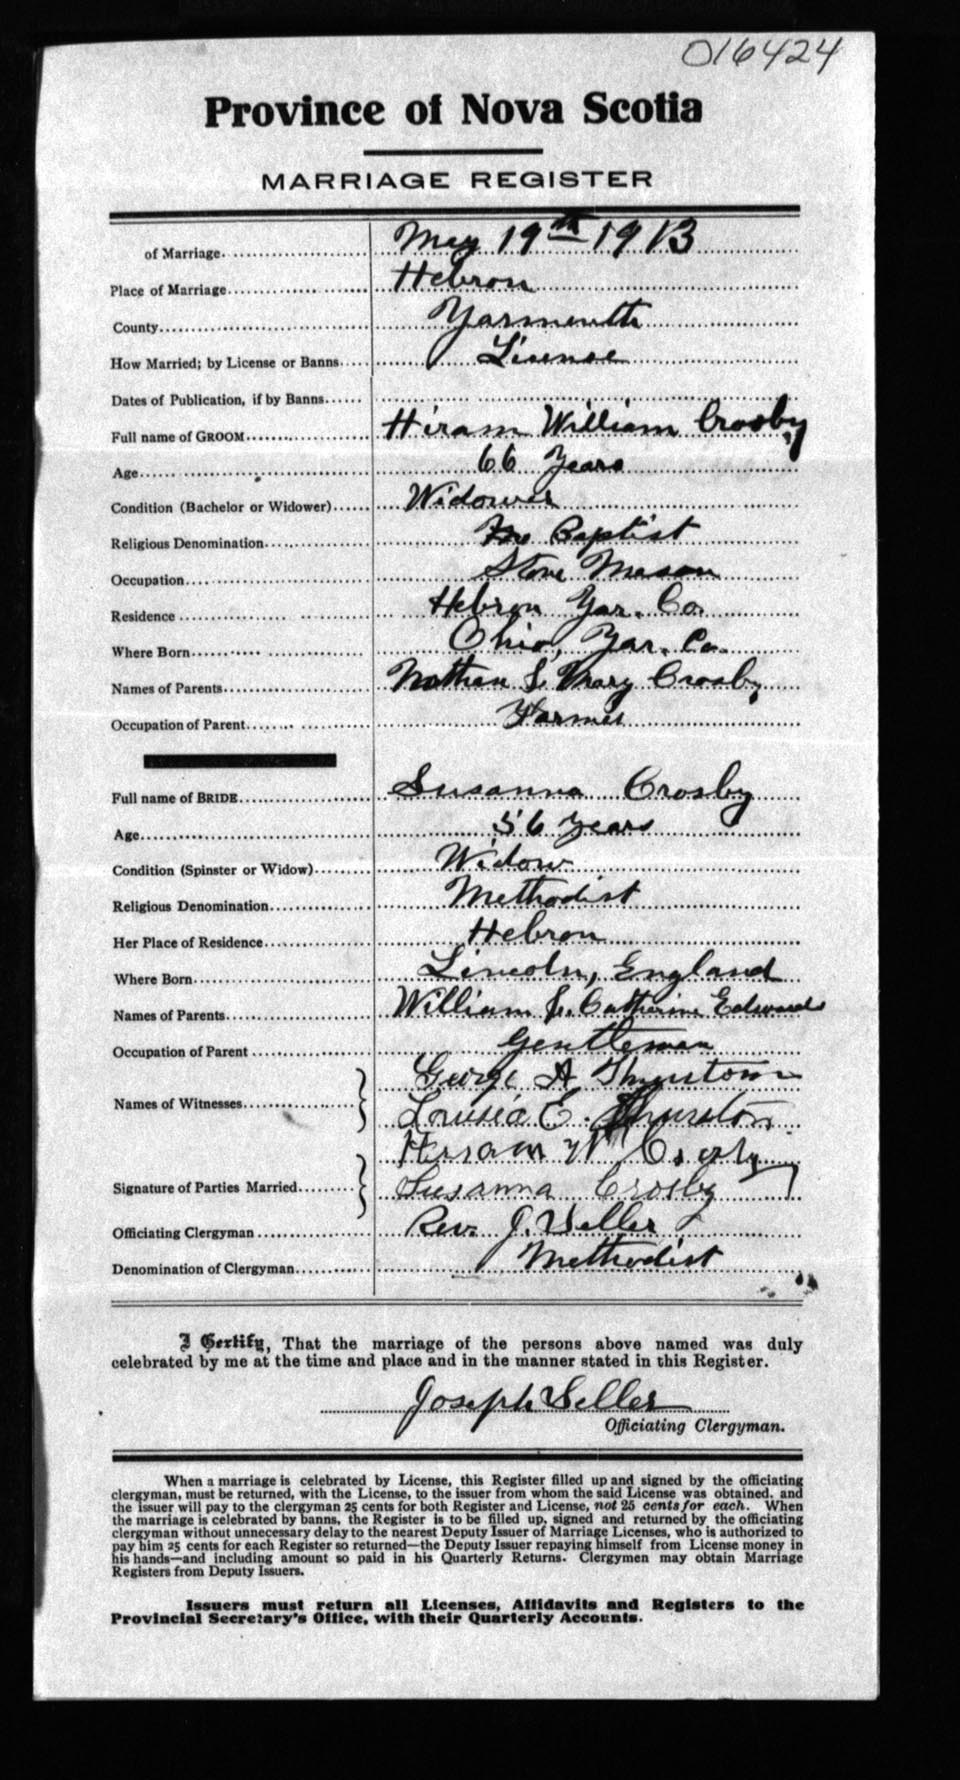 016424
Province of Nova Scotia
MARRIAGE REGISTER
of Marriage. May 19th 1913
Place of Marriage Hebron
County Yarmouth
How Married; by License or Banns License
Dates of Publication, if by Banns
Full name of GROOM Hiram William Crosby
Age 66 Years
Condition (Bachelor or Widower) Widower
Religious Denomination Baptist
Occupation Stone Mason
Residence Hebron Yar. Co.
Where Born Ohio, Yar. Co.
Names of Parents Nathan & Mary Crosby
Occupation of Parent Farmer
Full name of BRIDE Susanna Crosby
Age 56 years
Condition (Spinster or Widow) Widow
Religious Denomination Methodist
Her Place of Residence Hebron
Where Born Lincoln, England
Names of Parents William & Catherine Edwards
Occupation of Parent Gentleman
Names of Witnesses George A Thurston
Louisa E. Thurston
Signature of Parties Married Hiram Wm Crosby
Susanna Crosby
Officiating Clergyman Rev. J. Seller
Denomination of Clergyman Methodist
I Certify, That the marriage of the persons above named was duly
celebrated by me at the time and place and in the manner stated in this Register.
Joseph Seller
Officiating Clergyman.
When a marriage is celebrated by License, this Register filled up and signed by the officiating
clergyman, must be returned, with the License, to the issuer from whom the said License was obtained, and
the issuer will pay to the clergyman 25 cents for both Register and License, not 25 cents for each. When
the marriage is celebrated by banns, the Register is to be filled up, signed and returned by the officiating
clergyman without unnecessary delay to the nearest Deputy Issuer of Marriage Licenses, who is authorized to
pay him 25 cents for each Register so returned—the Deputy Issuer repaying himself from License money in
his hands—and including amount so paid in his Quarterly Returns. Clergymen may obtain Marriage
Registers from Deputy Issuers.
Issuers must return all Licenses, Affidavits and Registers to the
Provincial Secretary's Office, with their Quarterly Accounts.